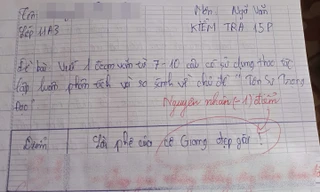 Tên
Môn: Ngữ Văn
Lớp 11A3
KIỂM TRA 15P
Đề bài: Viết 1 đoạn văn từ 7-10 câu có sử dụng thao tác
lập luận phân tích và so sánh về chủ đề "Tôn Sư Trọng
Đạo"
Nguyên nhân (-1) điểm
Điểm
Lời phê của cô Giang đẹp gái!